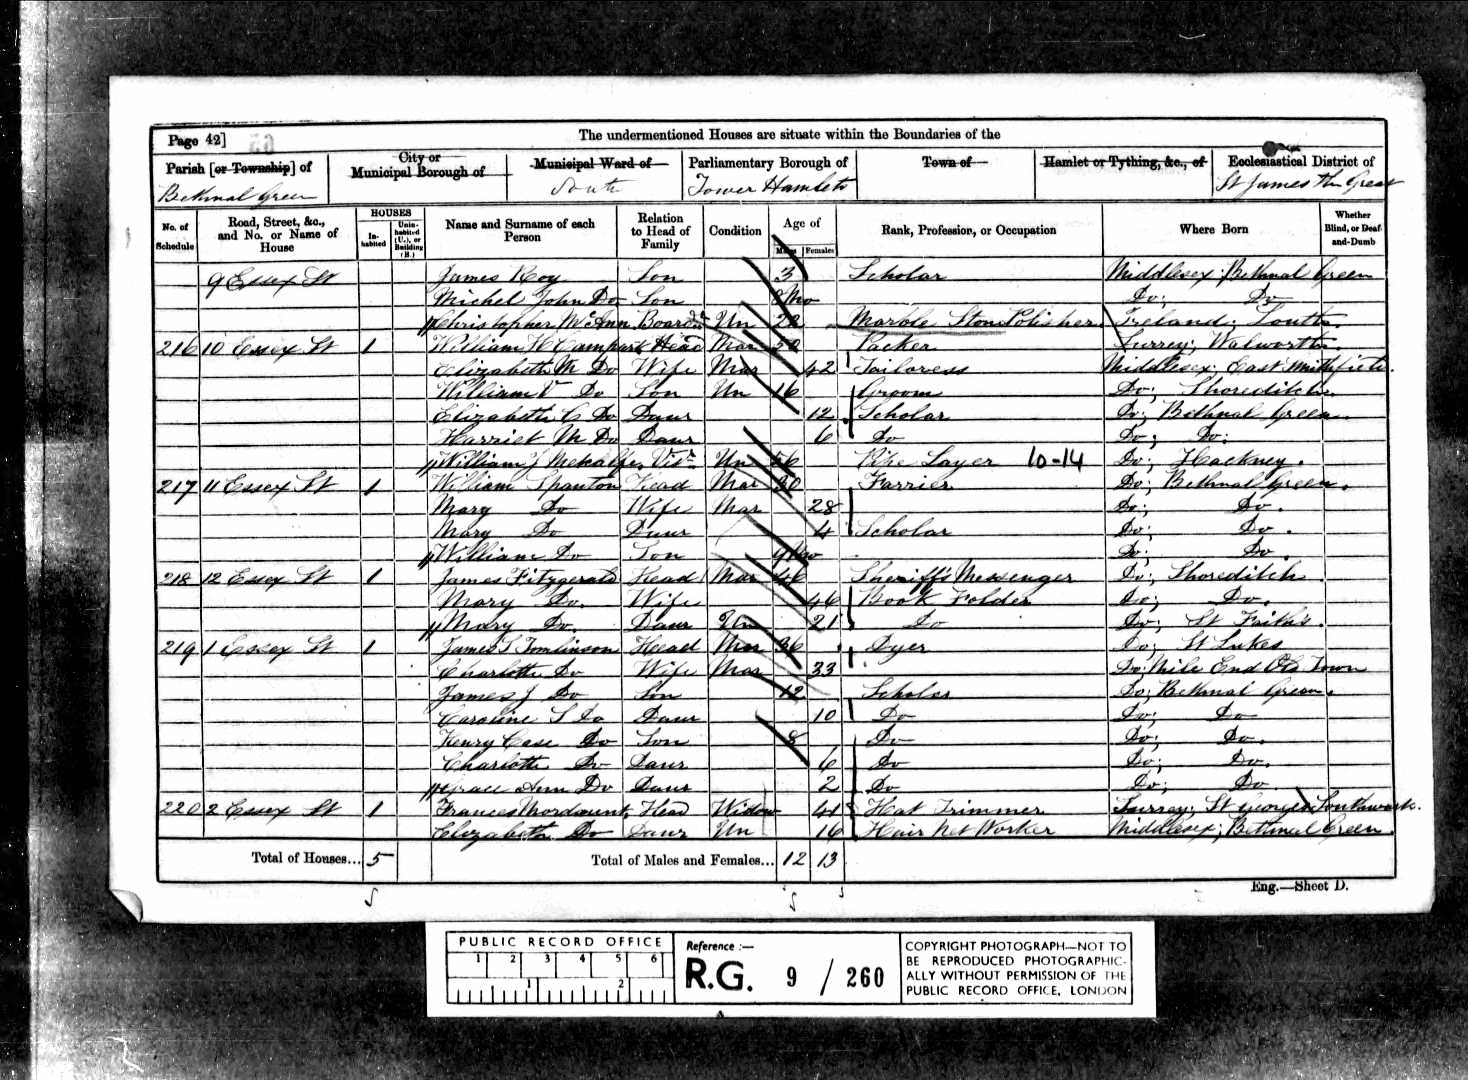 Page 42]
The undermentioned Houses are situate within the Boundaries of the
Parish [or Township] of
City or Municipal Borough of
Municipal Ward of
Parliamentary Borough of
Town of
Hamlet or Tything, &c., of
Ecclesiastical District of
Bethnal Green
South
Tower Hamlets
St James the Great
No. of Schedule
Road, Street, &c., and No. or Name of House
HOUSES
In-habited
Unin-habited (U.), or Building (B.)
Name and Surname of each Person
Relation to Head of Family
Condition
Age of
Males
Females
Rank, Profession, or Occupation
Where Born
Whether Blind, or Deaf-and-Dumb
9 Essex St James Roy Son 3 Scholar Middlesex; Bethnal Green
Michel John Do Son Mo Do; Do
Christopher McAnn Boarder Un 22 Marble Stone Polisher Ireland; Louth
216 10 Essex St 1 William W Head Mar 50 Packer Surrey; Walworth
Elizabeth M Do Wife Mar 42 Tailoress Middlesex; East Smithfield
William V Do Son Un 16 Groom Do; Shoreditch
Elizabeth C Do Daur 12 Scholar Do; Bethnal Green
Harriet M Do Daur 6 Do Do; Do
William J Metcalfe Visr Un 56 Pipe Layer 10-14 Do; Hackney
217 11 Essex St 1 William Spanton Head Mar 30 Farrier Do; Bethnal Green
Mary Do Wife Mar 28 Do; Do
Mary Do Daur 4 Scholar Do; Do
William Do Son 9Mo Do; Do
218 12 Essex St 1 James Fitzgerald Head Mar 46 Sheriff's Messenger Do; Shoreditch
Mary Do Wife 46 Book Folder Do; Do
Mary Do Daur Un 21 Do Do; St Faith's
219 1 Essex St 1 James S Tomlinson Head Mar 36 Dyer Do; St Lukes
Charlotte Do Wife Mar 33 Do; Mile End Old Town
James J Do Son 12 Scholar Do; Bethnal Green
Caroline S Do Daur 10 Do Do; Do
Henry Case Do Son 8 Do Do; Do
Charlotte Do Daur 6 Do Do; Do
Grace Ann Do Daur 2 Do Do; Do
220 2 Essex St 1 Frances Mordaunt Head Widow 41 Hat Trimmer Surrey; St Georges Southwark
Elizabeth Do Daur Un 16 Hair Net Worker Middlesex; Bethnal Green
Total of Houses... 5 Total of Males and Females... 12 13
Eng.—Sheet D.
PUBLIC RECORD OFFICE
1 2 3 4 5 6
1 2
Reference :—
R.G. 9 / 260
COPYRIGHT PHOTOGRAPH—NOT TO
BE REPRODUCED PHOTOGRAPHIC-
ALLY WITHOUT PERMISSION OF THE
PUBLIC RECORD OFFICE, LONDON